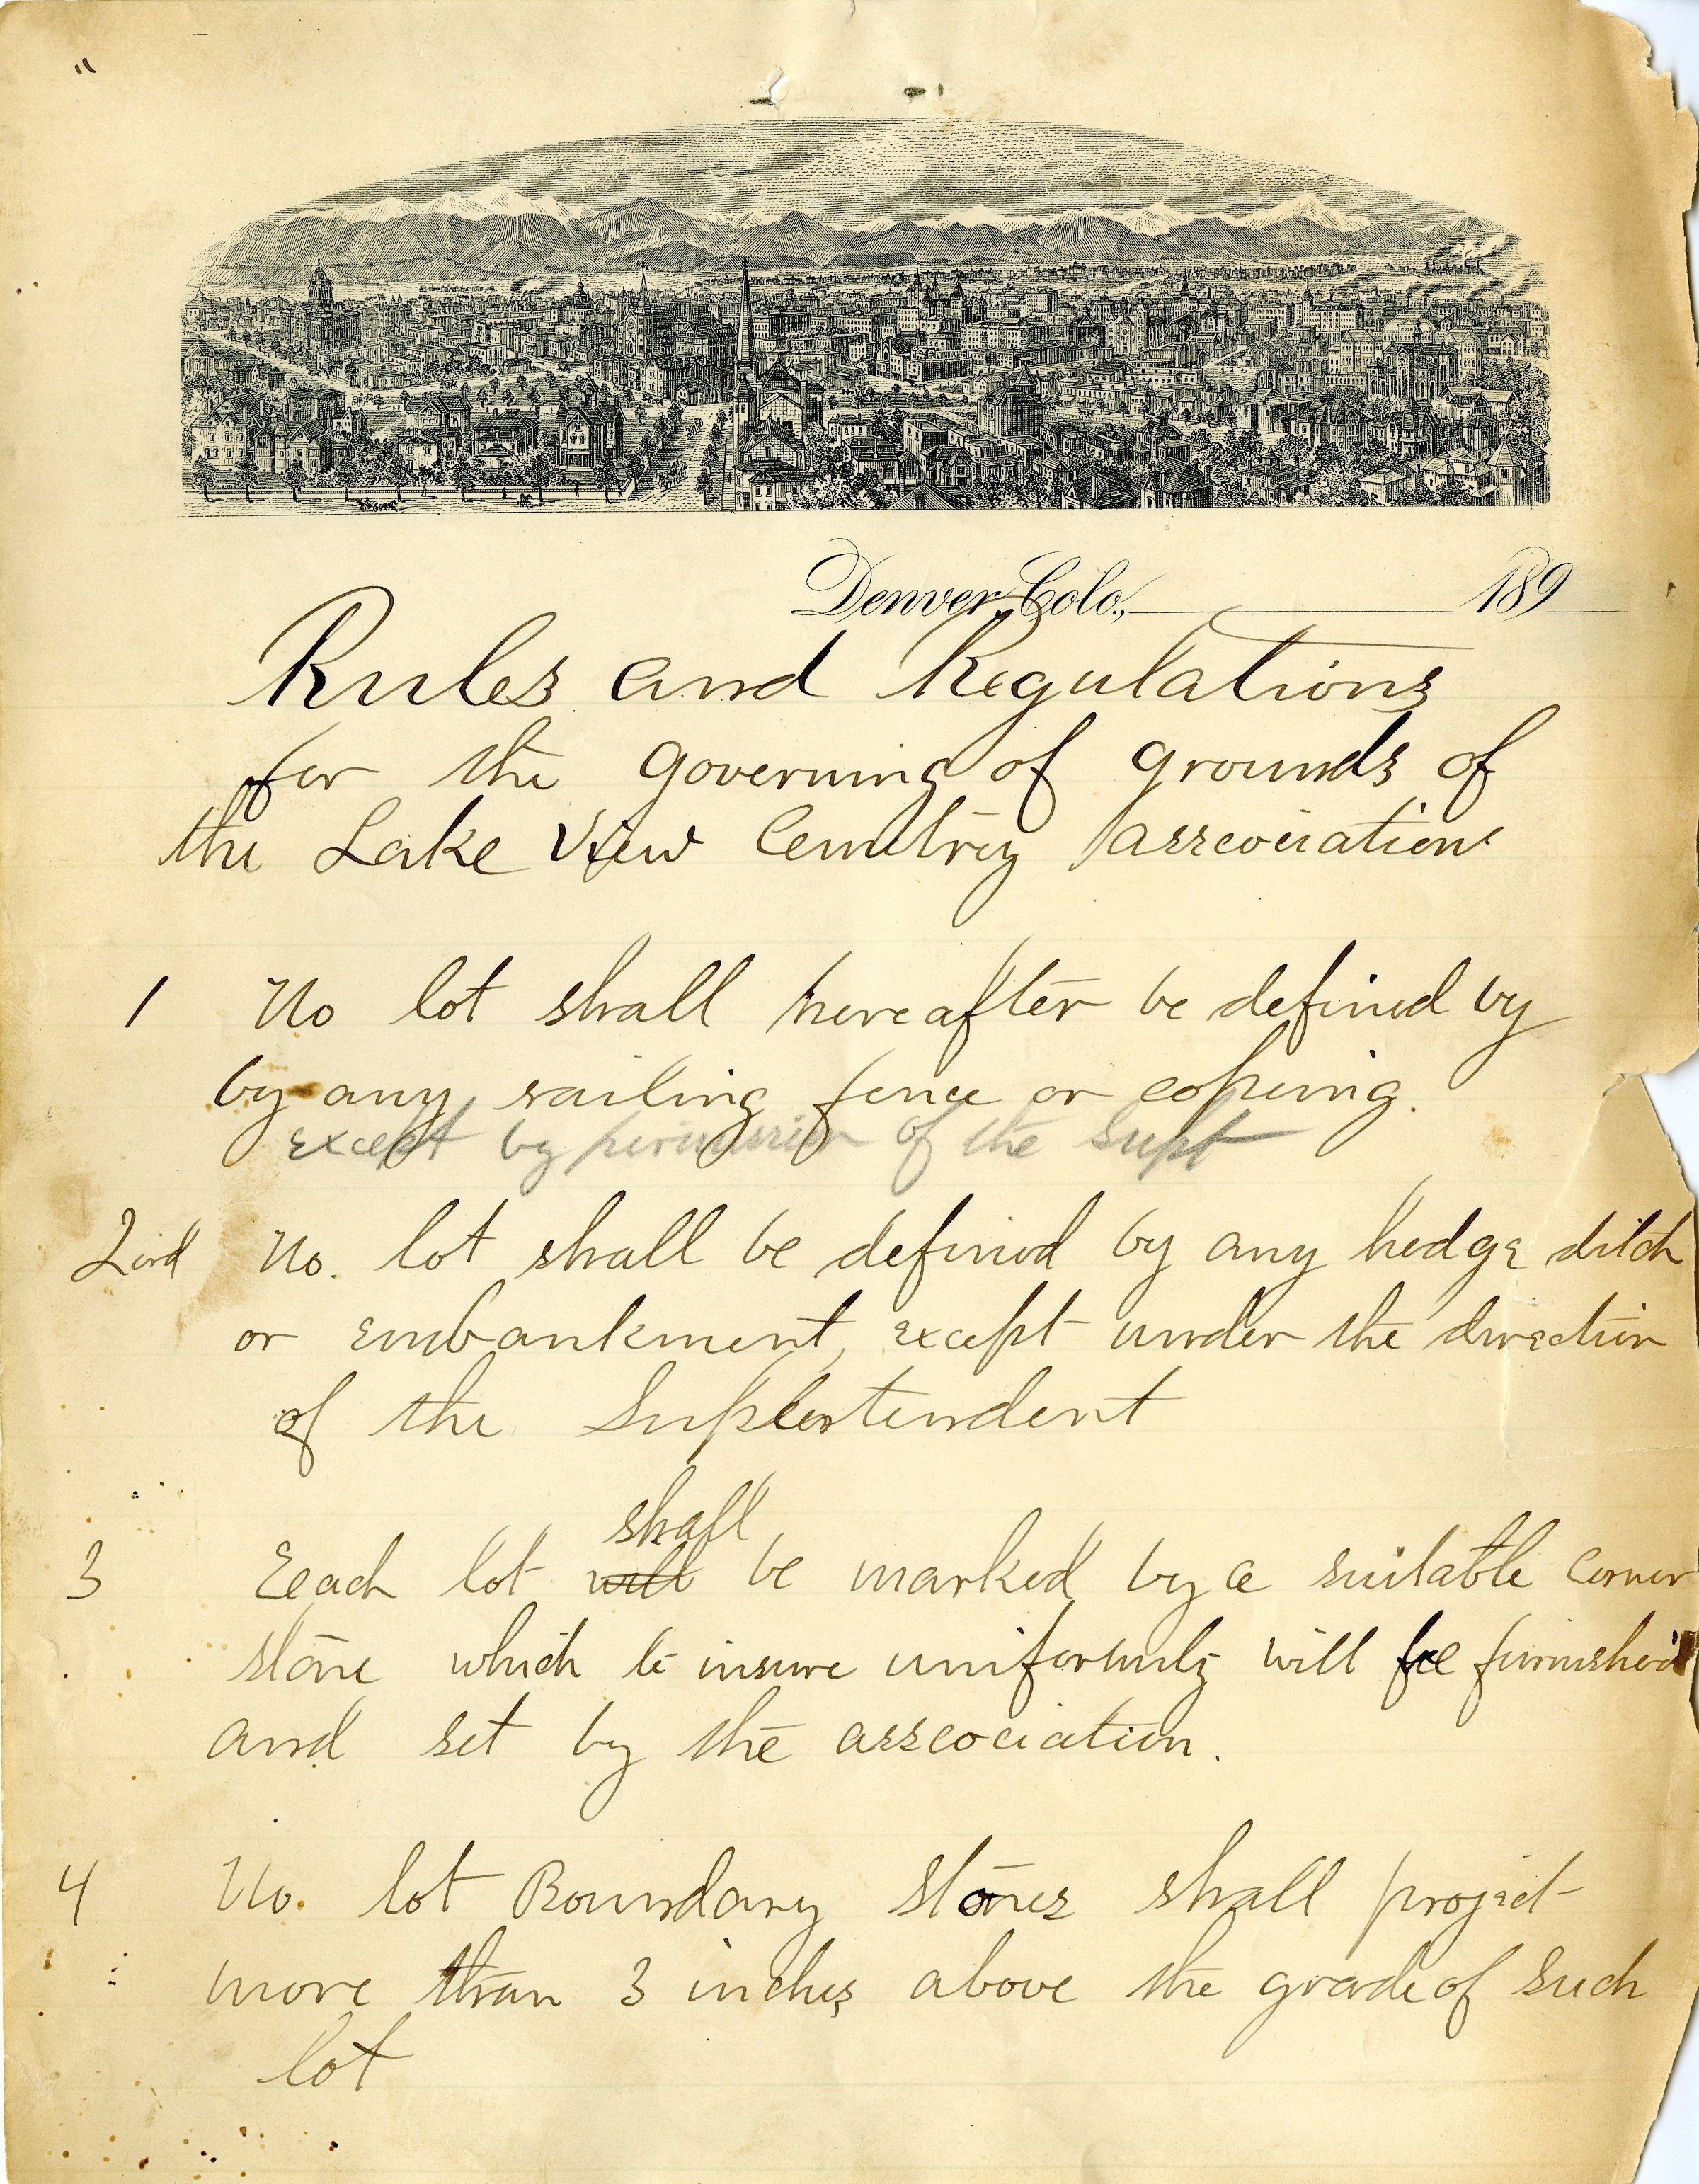 Denver, Colo., 189
Rules and Regulations
for the governing of grounds of
the Lake View Cemetry assrociation
1 No lot shall hereafter be defined by
by any railing fence or copeing.
except by permission of the Supt
2nd No. lot shall be defined by any hedge ditch
or embankment, except under the direction
of the
shall
3 Eeach lot will be marked by a suitable Corner
stone which to insure uniformity will be furnished
and set by the assrociation.
4 No. lot Boundary stones shall project
more than 3 inches above the grade of such
lot